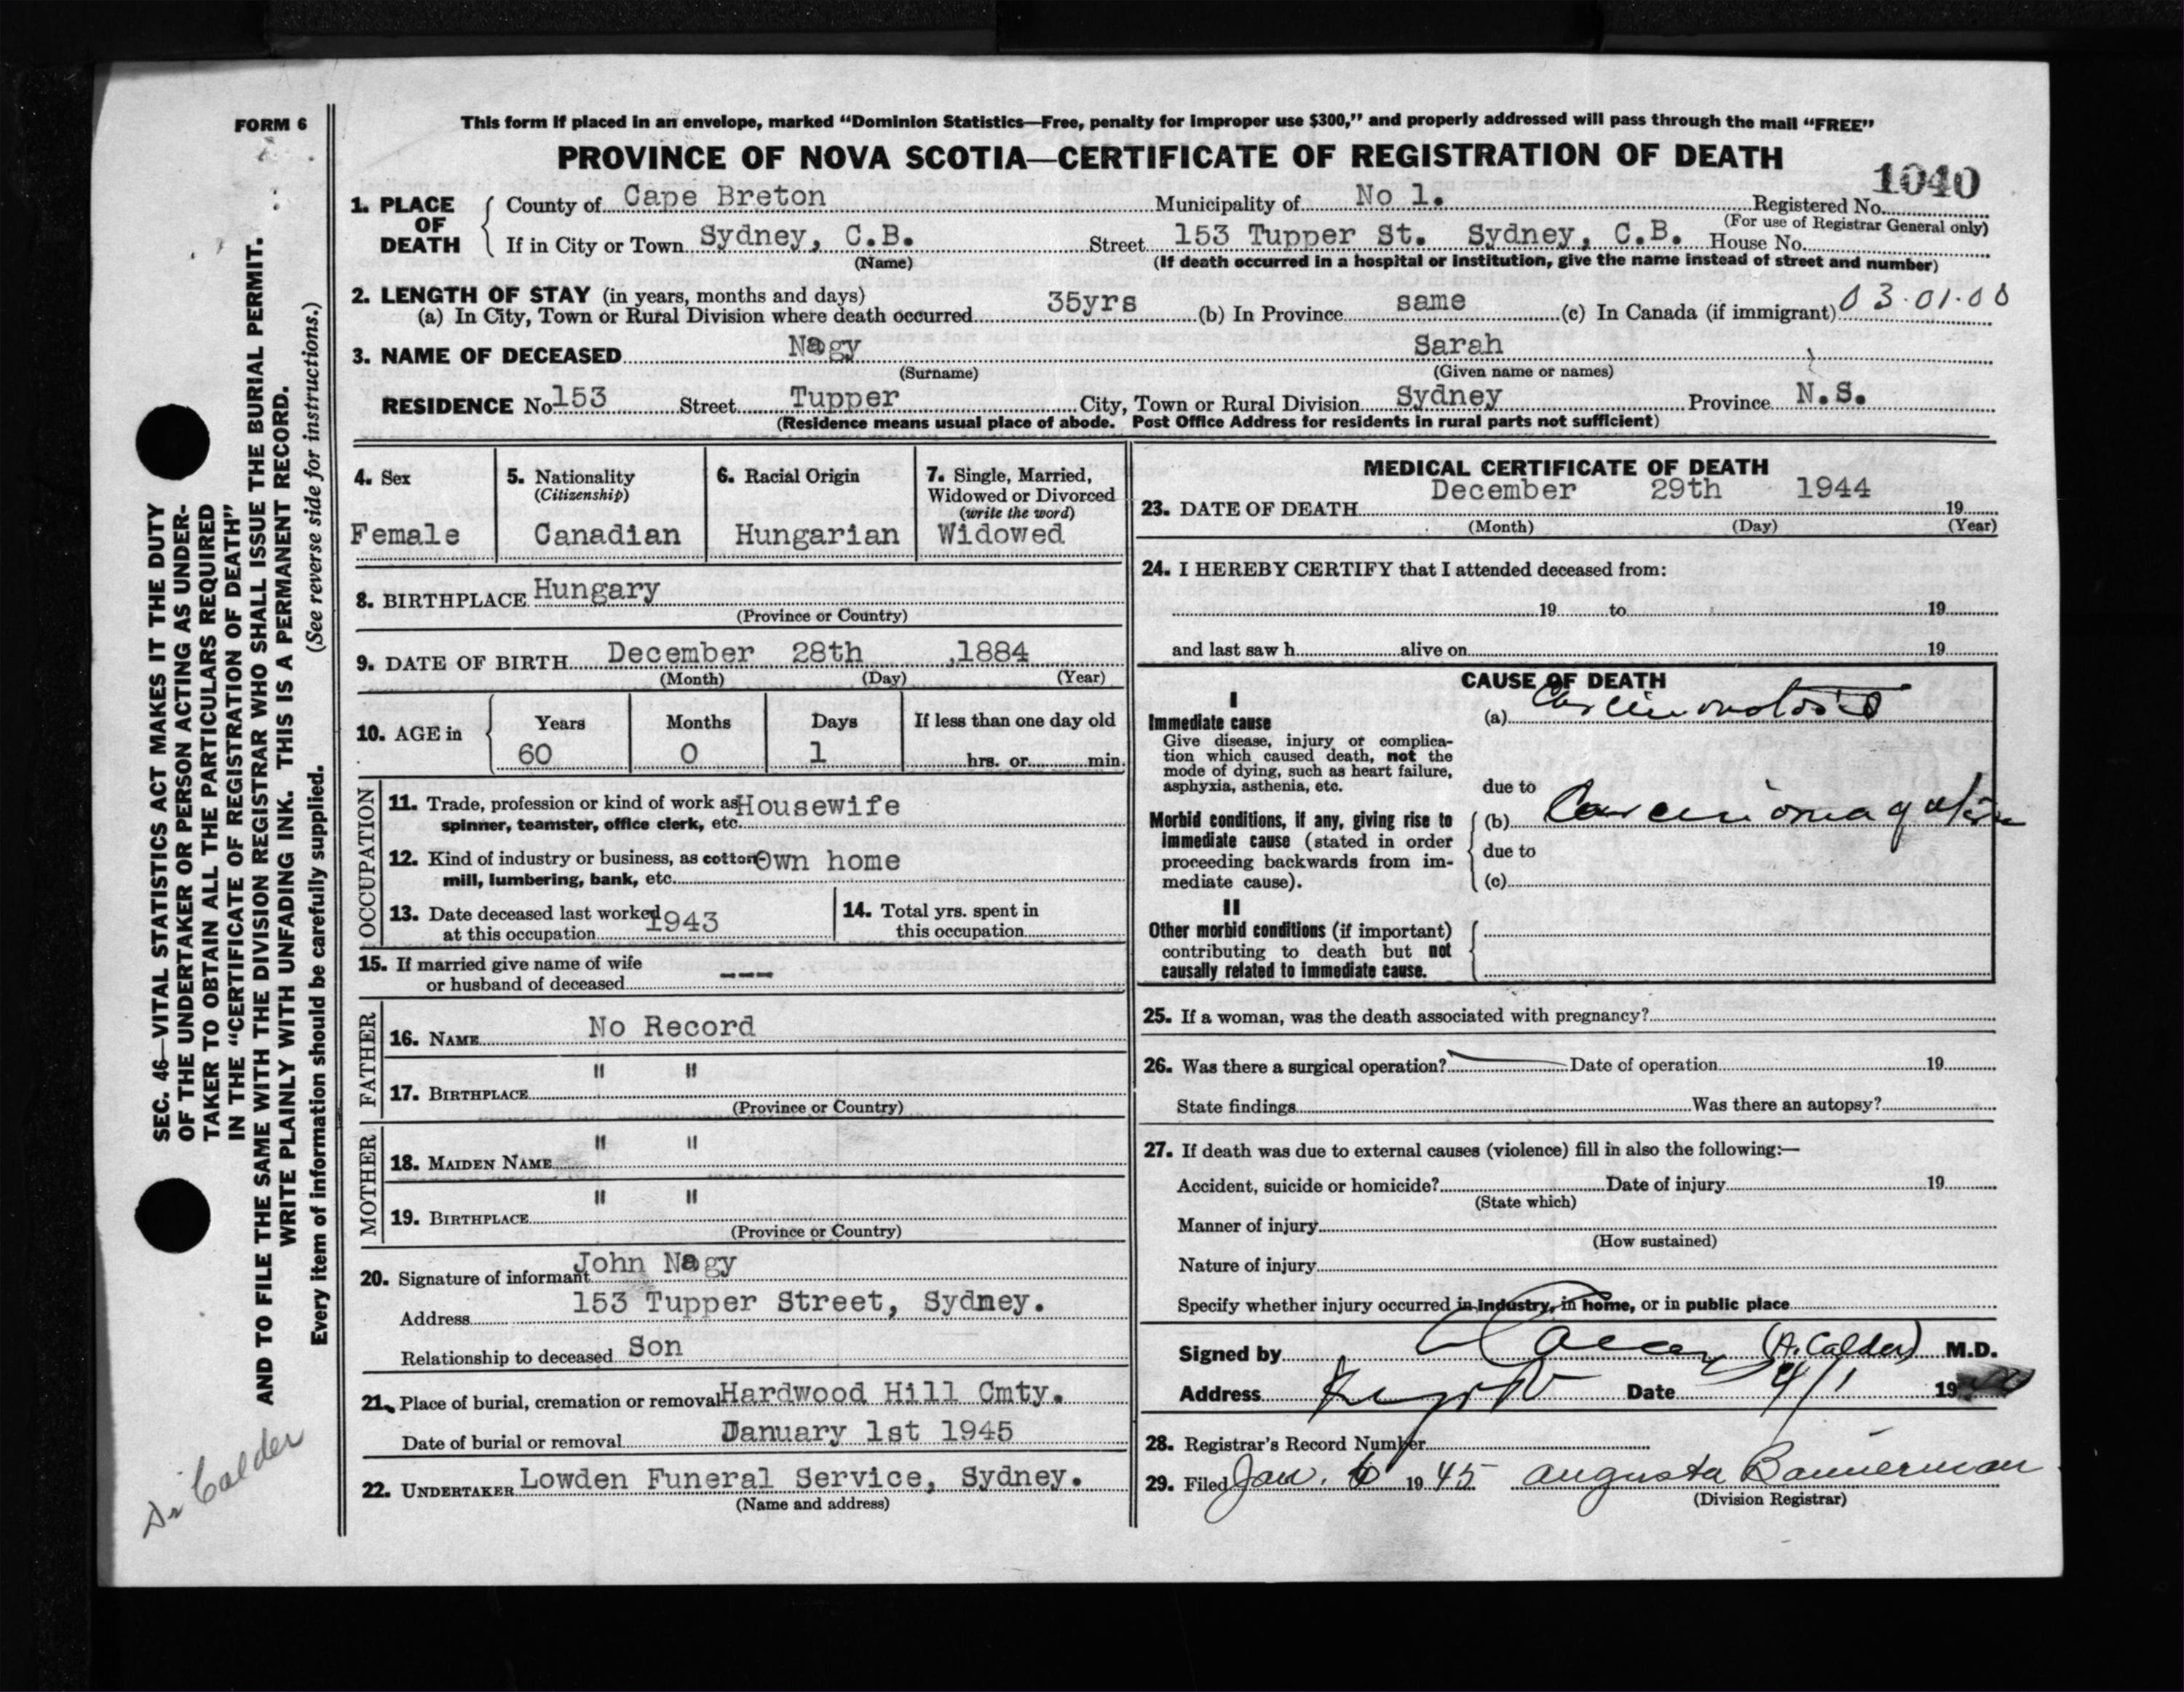 FORM 6
This form if placed in an envelope, marked “Dominion Statistics—Free, penalty for improper use $300,” and properly addressed will pass through the mail “FREE”
PROVINCE OF NOVA SCOTIA—CERTIFICATE OF REGISTRATION OF DEATH
1040
1. PLACE OF DEATH
County of Cape Breton Municipality of No 1. Registered No.
(For use of Registrar General only)
If in City or Town Sydney, C.B. Street 153 Tupper St. Sydney, C.B. House No.
(Name) (If death occurred in a hospital or institution, give the name instead of street and number)
2. LENGTH OF STAY (in years, months and days)
(a) In City, Town or Rural Division where death occurred 35yrs (b) In Province same (c) In Canada (if immigrant) 03.01.00
3. NAME OF DECEASED Nagy Sarah
(Surname) (Given name or names)
RESIDENCE No 153 Street Tupper City, Town or Rural Division Sydney Province N.S.
(Residence means usual place of abode. Post Office Address for residents in rural parts not sufficient)
4. Sex
Female
5. Nationality
(Citizenship)
Canadian
6. Racial Origin
Hungarian
7. Single, Married,
Widowed or Divorced
(write the word)
Widowed
8. BIRTHPLACE Hungary
(Province or Country)
9. DATE OF BIRTH December 28th ,1884
(Month) (Day) (Year)
10. AGE in Years Months Days If less than one day old
60 0 1 hrs. or min.
OCCUPATION
11. Trade, profession or kind of work as Housewife
spinner, teamster, office clerk, etc.
12. Kind of industry or business, as cotton Own home
mill, lumbering, bank, etc.
13. Date deceased last worked 1943
at this occupation
14. Total yrs. spent in
this occupation
15. If married give name of wife ---
or husband of deceased
FATHER
16. NAME No Record
17. BIRTHPLACE " "
(Province or Country)
MOTHER
18. MAIDEN NAME " "
19. BIRTHPLACE " "
(Province or Country)
20. Signature of informant John Nagy
Address 153 Tupper Street, Sydney.
Relationship to deceased Son
21. Place of burial, cremation or removal Hardwood Hill Cmty.
Date of burial or removal January 1st 1945
22. UNDERTAKER Lowden Funeral Service, Sydney.
(Name and address)
MEDICAL CERTIFICATE OF DEATH
23. DATE OF DEATH December 29th 1944 19
(Month) (Day) (Year)
24. I HEREBY CERTIFY that I attended deceased from:
19 to 19
and last saw h alive on 19
CAUSE OF DEATH
I
Immediate cause (a) Carcinomatosis
Give disease, injury or complica-
tion which caused death, not the
mode of dying, such as heart failure,
asphyxia, asthenia, etc. due to
Morbid conditions, if any, giving rise to (b) Carcinoma of
immediate cause (stated in order due to
proceeding backwards from im-
mediate cause). (c)
II
Other morbid conditions (if important)
contributing to death but not
causally related to immediate cause.
25. If a woman, was the death associated with pregnancy?
26. Was there a surgical operation? Date of operation 19
State findings Was there an autopsy?
27. If death was due to external causes (violence) fill in also the following:—
Accident, suicide or homicide? Date of injury 19
(State which)
Manner of injury
(How sustained)
Nature of injury
Specify whether injury occurred in industry, in home, or in public place
Signed by (A. Calder) M.D.
Address Date 4/1 19
28. Registrar's Record Number
29. Filed Jan. 6 1945 Augusta Bannerman
(Division Registrar)
SEC. 46—VITAL STATISTICS ACT MAKES IT THE DUTY
OF THE UNDERTAKER OR PERSON ACTING AS UNDER-
TAKER TO OBTAIN ALL THE PARTICULARS REQUIRED
IN THE “CERTIFICATE OF REGISTRATION OF DEATH”
AND TO FILE THE SAME WITH THE DIVISION REGISTRAR WHO SHALL ISSUE THE BURIAL PERMIT.
WRITE PLAINLY WITH UNFADING INK. THIS IS A PERMANENT RECORD.
Every item of information should be carefully supplied. (See reverse side for instructions.)
Dr Calder